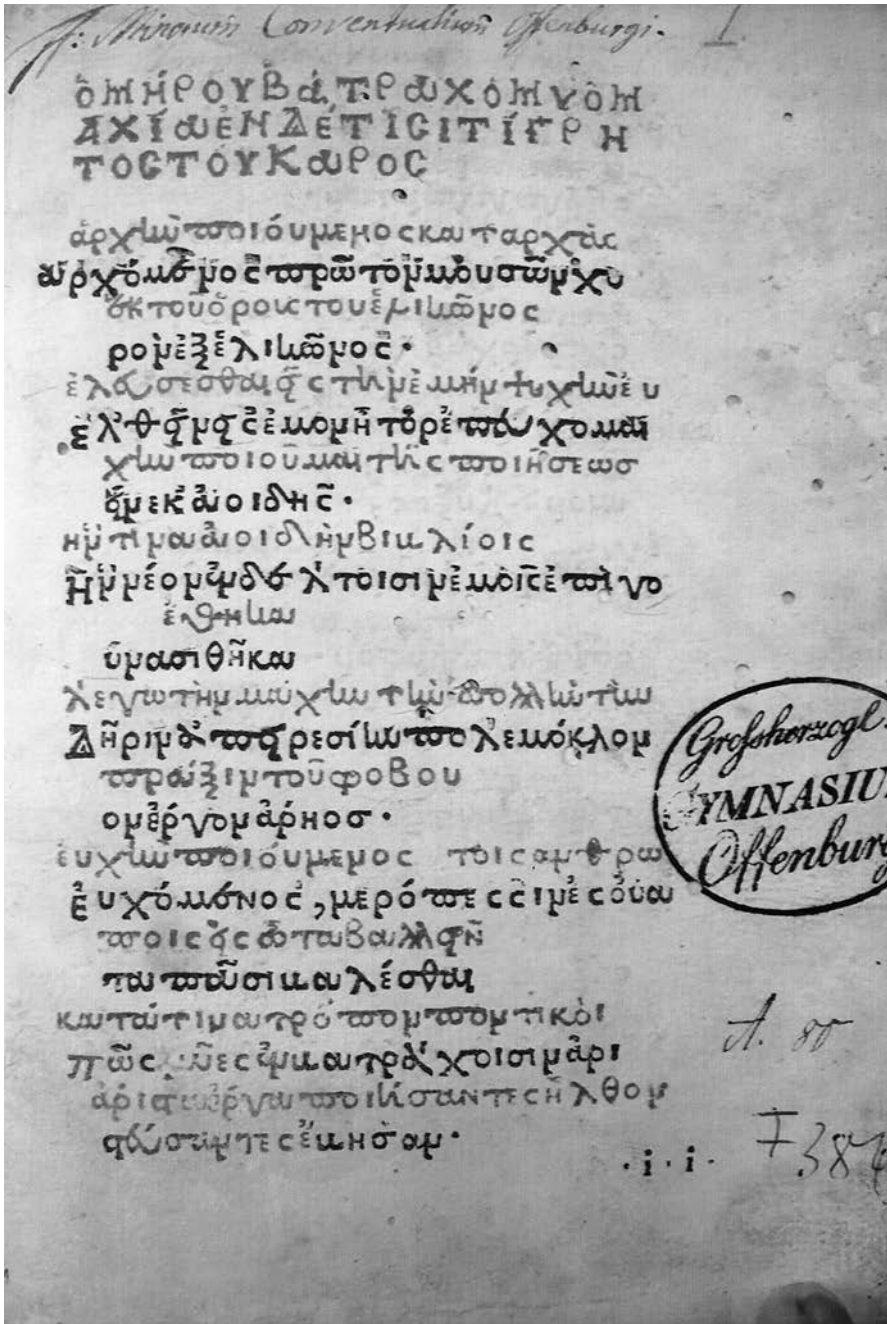 ff: Minorum Conventualium Offenburgi. I
ὉΜΉΡΟΥΒΑΤΡΩΧΟΜΥΟΜ
ΑΧΊΑ ΕΝ ΔΈ ΤΙΣΙ ΤΊΓΡΗ
ΤΟΣ ΤΟΥ ΚΑΡΟΣ
ἀρχὴν ποιούμενος κατ αρχὰς
ἀρχόμενος πρῶτον μουσῶν χο
ἐκ τοῦ ὄρους του ἑλικῶνος
ρον ἐξ ἑλικῶνος·
ἐλάσεσθαι εἰς τὴν ἐμὴν ψυχὴν εὐ
ἐλθεῖν εἰς ἐμὸν ἦτορ ἐπεύχομαι
χὴν ποιοῦμαι τῆς ποιήσεωσ
εἵνεκ ἀοιδῆς·
ἥν τινα ἀοιδὴν βιβλίοις
ἣν νέον ἐν δέλτοισιν ἐμοῖς ἐπὶ γο
ἔθηκα
ύνασι θῆκα
λέγω τὴν μάχην τὴν πολλὴν τὴν
Δῆριν ἀπειρεσίην πολεμόκλον
πράξιν τοῦ φόβου
ον ἔργον ἄρηοσ·
εὐχὴν ποιούμενος τοις ανθρω
Εὐχόμενος, μερόπεσσιν ἐς οὔα
ποις εἰς ὦτα βαλλεῖν
τα πᾶσι βαλέσθαι
κατά τινα τρόπον ποντικοὶ
πῶς μῦες ἐν βατράχοισιν ἀρι
ἀριστα ἔργα ποιήσαντες ἦλθον
στεύσαντες ἔβησαν·
·i·i·
Grossherzogl.
GYMNASIU
Offenburg
A. 80
I 38